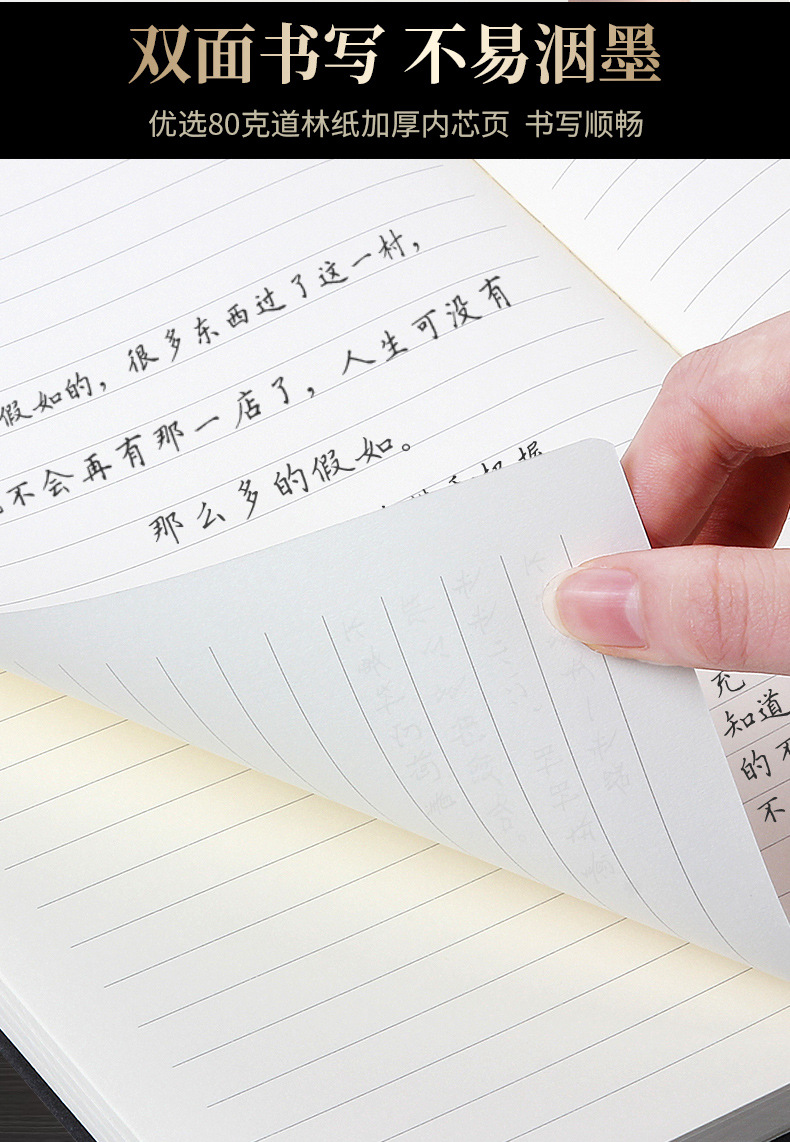 双面书写 不易洇墨
优选80克道林纸加厚内芯页 书写顺畅
假如的，很多东西过了这一村，
不会再有那一店了，人生可没有
那么多的假如。
把握
充
知道
的不
不